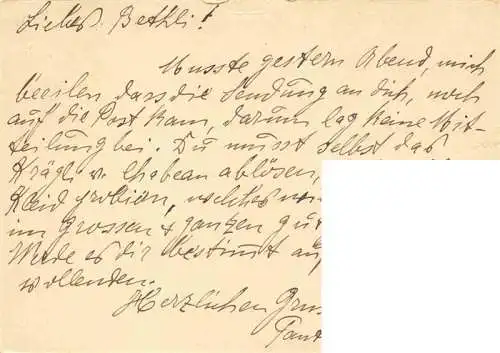 Liebes Bethli!
Musste gestern Abend, mich
beeilen dass die Sendung an dich, noch
auf die Post kam, darum lag keine Mit-
teilung bei. Du musst selbst das
Krägli v. ablösen,
Kleid probieren, welches
im grossen & ganzen gut
Werde es dir bestimmt
vollenden.
Herzlichen Grus
Tant